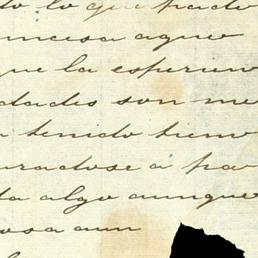 do lo que pado
ncesa aque
que la esperien
dades son me
n tenido tiem
uradose á pa
da algo aunque
osa aun